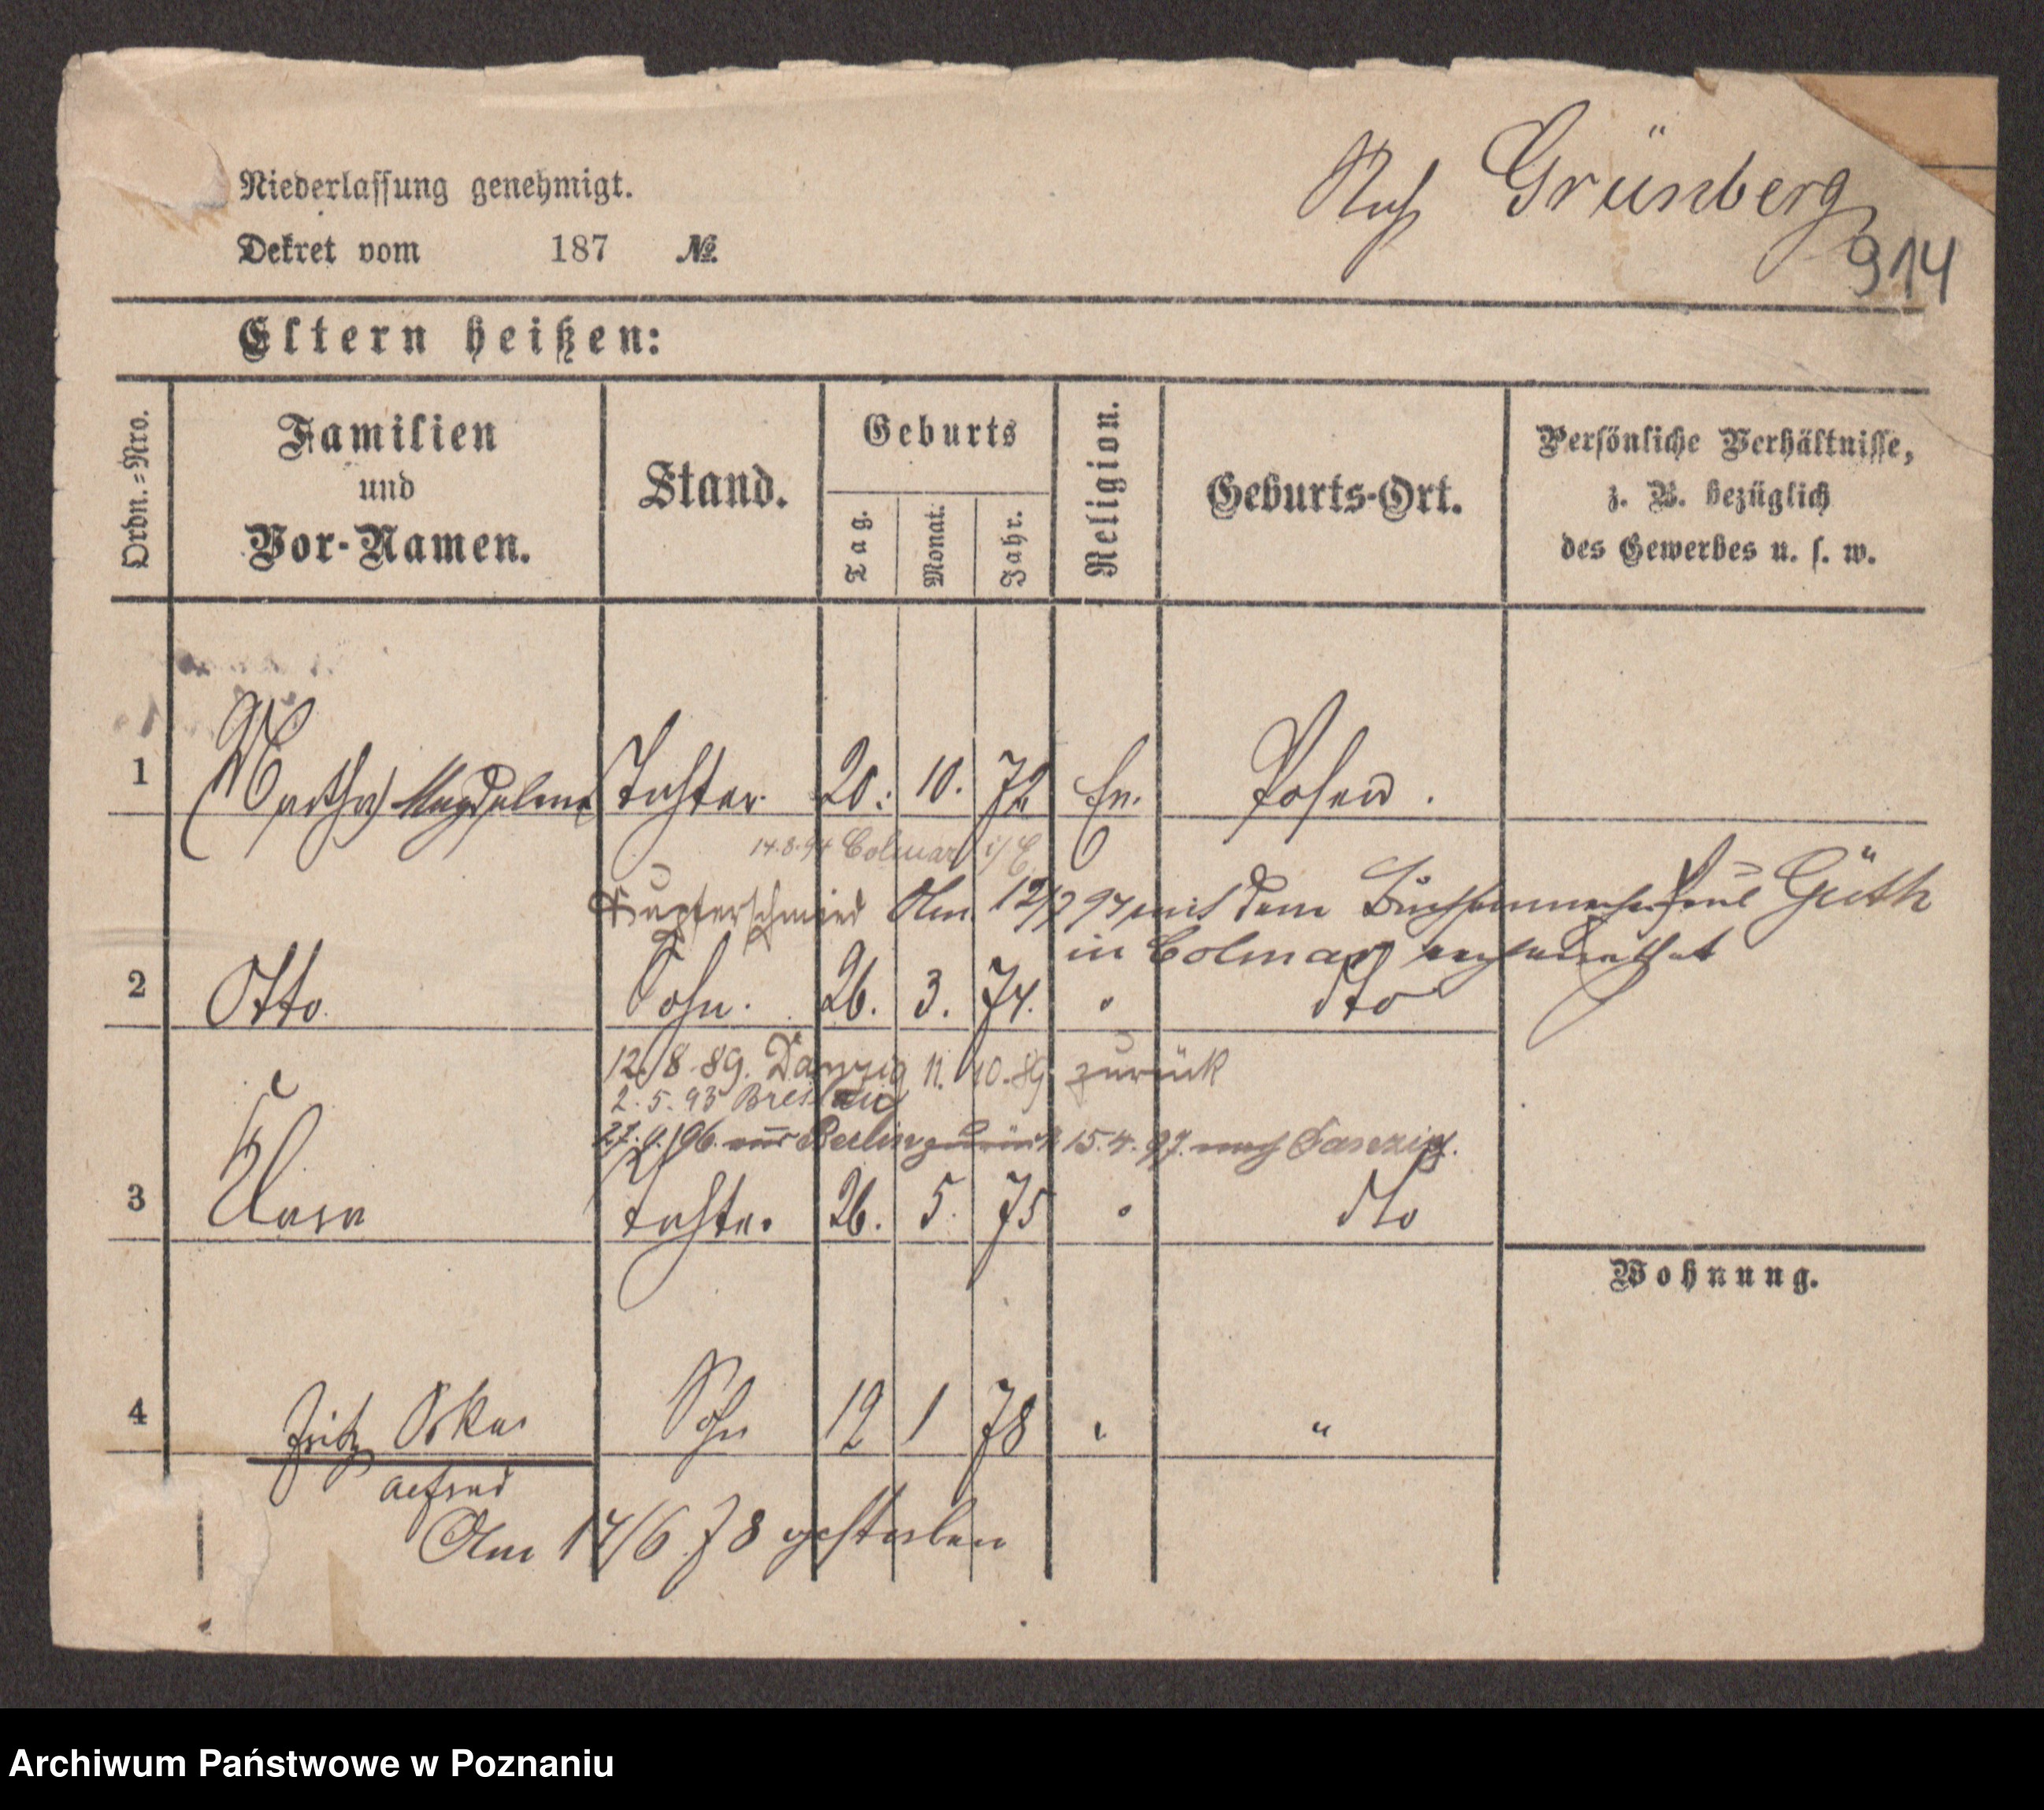 Niederlassung genehmigt.
Grünberg
Dekret vom 187 №
914
Eltern heißen:
Ordn.-Nro.
Familien und Vor-Namen.
Stand.
Geburts
Tag.
Monat.
Jahr.
Religion.
Geburts-Ort.
Persönliche Verhältnisse, z. B. bezüglich des Gewerbes u. s. w.
1 Martha Magdalena Tochter 20. 10. 72 Ev. Posen.
14.8.94 Colmar i/E
Kupferschmied Am 12/2 97 mit dem Büchsenmacher Paul Güth
in Colmar verheirathet
2 Otto Sohn. 26. 3. 74. " dto
12./8 89. Danzig 11. 10. 89 zurück
2. 5. 93
96. aus Berlin zurück 15. 4. 97. nach Danzig.
3 Clara Tochter 26. 5. 75 " dto
Wohnung.
4 Fritz Oskar Sohn 12 1 78 " "
Alfred
Am 17/6 78 gestorben
Archiwum Państwowe w Poznaniu